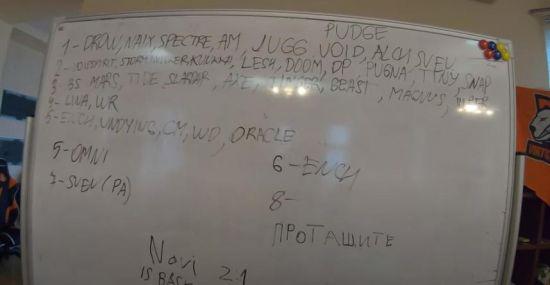 PUDGE
1-DROW, NAIX, SPECTRE, AM, JUGG VOID, ALCH SVEN
LESH, DOOM, DP, PUGNA, TINY, SNAP
3- BS MARS, TIDE SLARDAR, AXE, TINKER, BEAST, MAGNUS,
4-LINA, WR
5-ENCH, UNDYING, CM, WD, ORACLE
5-OMNI
6-ENCH
7-SVEN (PA)
8-
ПРОТАЩИТЕ
Navi 2-1
IS BASK